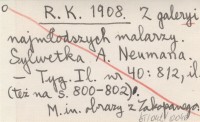 R. K. 1908. Z galeryi
najmłodszych malarzy.
Sylwetka A. Neumana.
— Tyg. Il. nr 40: 812, il.
(też na s. 800-802).
M. in. obrazy z Zakopanego.